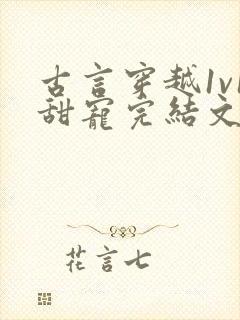 古言穿越1v1
甜寵完結文
花言七